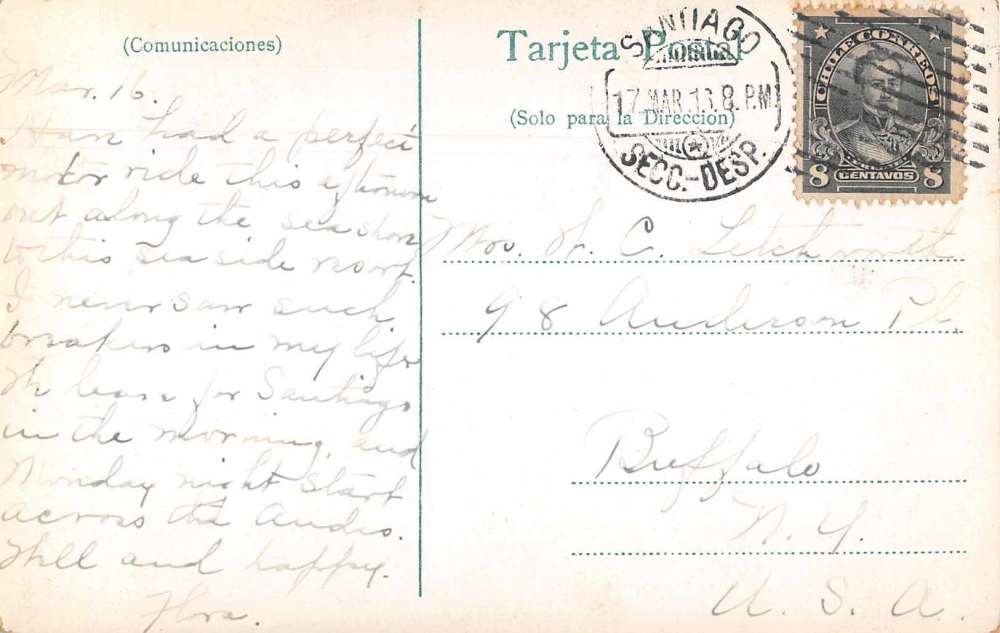 (Comunicaciones)
Mar. 16.
Have had a perfect
motor ride this afternoon
out along the sea shore
to this sea side resort.
I never saw such
breakers in my life
We leave for Santiago
in the morning, and
Monday night start
across the Andes.
Well and happy.
Flora.
Tarjeta Postal
(Solo para la Dirección)
SANTIAGO
17 MAR. 13. 8. PM
SECC.-DESP.
CHILE CORREOS
8 CENTAVOS 8
Mrs. W. C. Letchworth
98 Anderson Pl.
Buffalo
N. Y.
U. S. A.